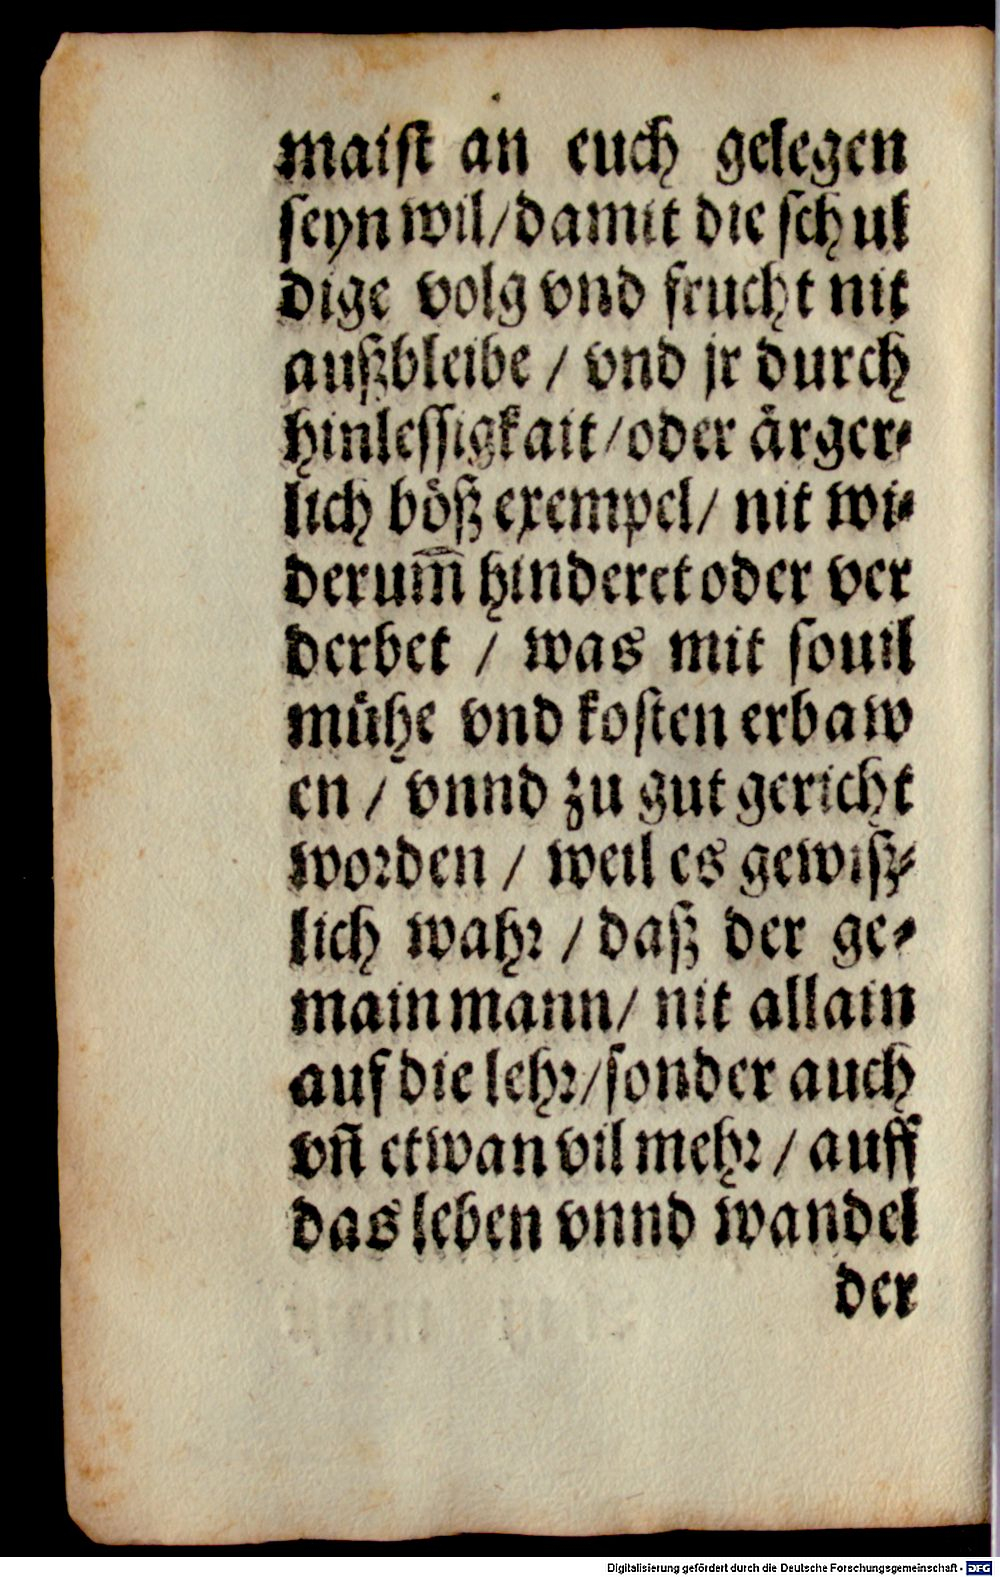 maist an euch gelegen
seyn wil/damit die schul
dige volg vnd frucht nit
außbleibe / vnd jr durch
hinlessigkait/oder ärger⸗
lich böß exempel/ nit wi⸗
derum̃ hinderet oder ver
derbet / was mit souil
mühe vnd kosten erbaw
en / vnnd zu gut gericht
worden / weil es gewiß⸗
lich wahr / daß der ge⸗
main mann/ nit allain
auf die lehr/sonder auch
vñ etwan vil mehr / auff
das leben vnnd wandel
der
Digitalisierung gefördert durch die Deutsche Forschungsgemeinschaft - DFG